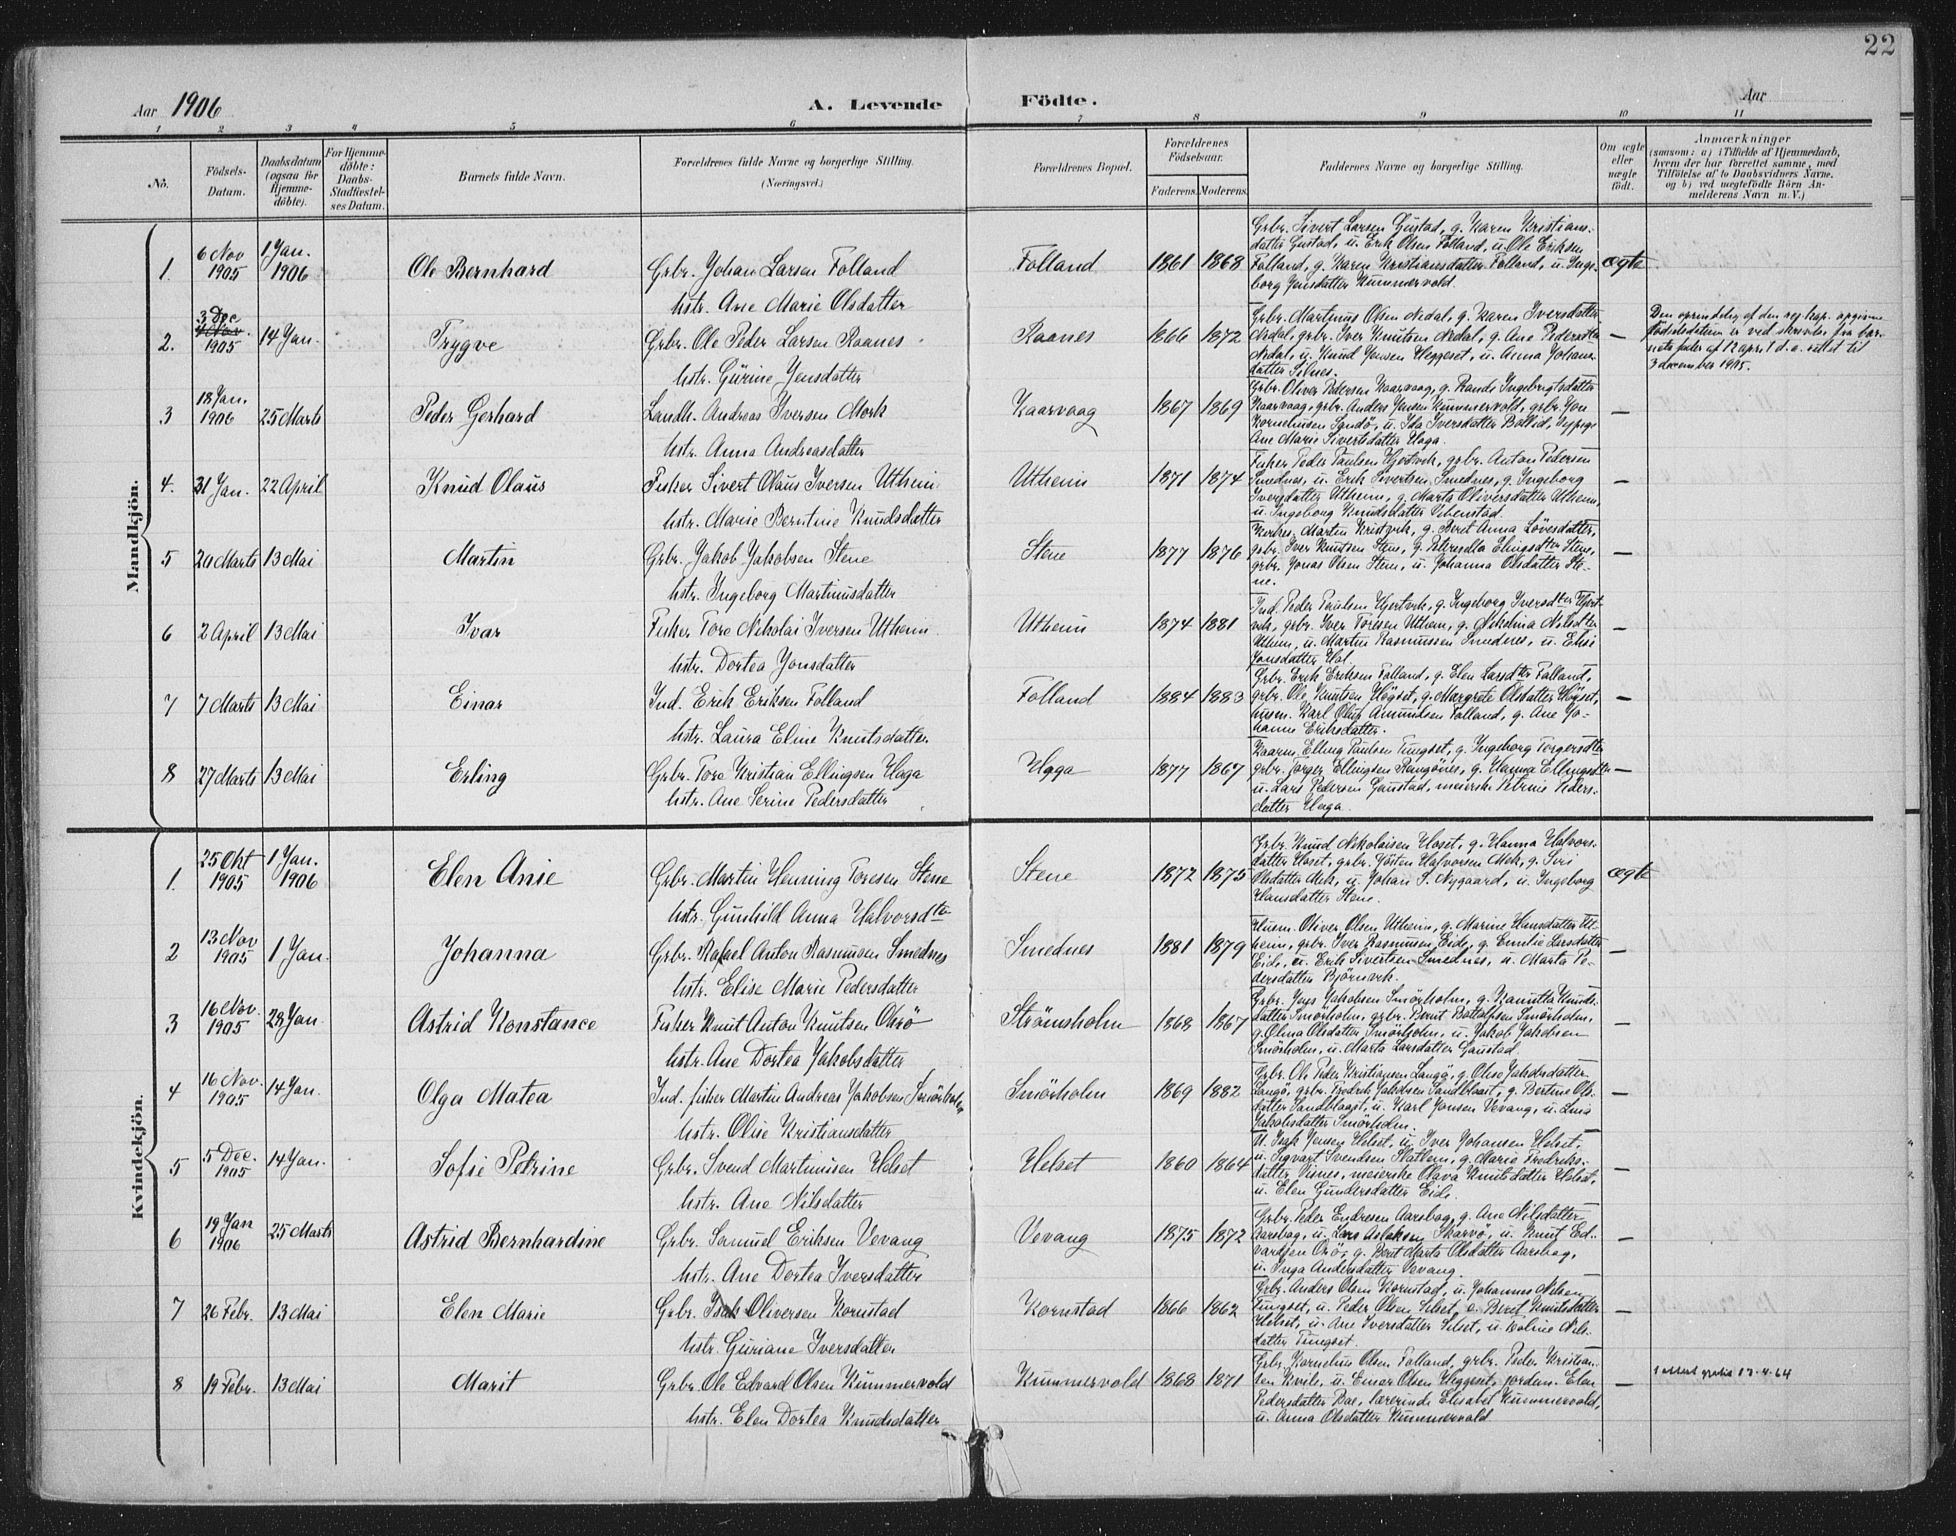 22
Aar 1906
A. Levende Födte.
Aar
1 2 3 4 5 6 7 8 9 10 11
No.
Födsels-Datum.
Daabsdatum (ogsaa for Hjemme-döbte).
For Hjemme-döbte: Daabs-Stadfæstel-ses Datum.
Barnets fulde Navn.
Forældrenes fulde Navne og borgerlige Stilling. (Næringsvei.)
Forældrenes Bopæl.
Forældrenes Födselsaar.
Faderens. Moderens.
Faddernes Navne og borgerlig Stilling.
Om ægte eller uægte födt.
Anmærkninger
(saasom: a) i Tilfælde af Hjemmedaab,
hvem der har forrettet samme, med
Tilföielse af to Daabsvidners Navne.
og b) ved uægtefödte Börn An-
melderens Navn m. V.)
Mandkjön.
1. 6 Nov 1905 1 Jan. 1906 Ole Bernhard Grbr. Johan Larsen Folland
hstr. Ane Marie Olsdatter
Folland 1861 1868
Grbr. Sivert Larsen Gustad, g. Karen Kristians-
datter Gustad, u. Erik Olsen Folland, u. Ole Eriksen
Folland, g. Karen Kristiansdatter Folland, u. Inge-
borg Jensdatter Kummervold.
ægte
2. 3 Dec 4 Nov. 1905 14 Jan. Trygve Grbr. Ole Peder Larsen Raanes
hstr. Gürine Jensdatter
Raanes 1866 1872
Grbr. Martinus Olsen Nedal, g. Karen Iversdatter
Nedal, grbr. Iver Knutsen Nedal, g. Ane Pedersdtr
Nedal, u. Knud Jonsen Heggeset, u. Anna Johans-
datter Silnes.
Den oprindelig af den rej. kap. opgivne
födselsdatum er ved skrivelse fra bar-
nets fader af 12 april d. a. rettet til
3 december 1905.
3 18 Jan. 1906 25 Marts Peder Gerhard Landh. Andreas Iversen Mork
hstr. Anna Andreasdatter
Kaarvaag 1867 1869
Grbr. Oliver Pedersen Kaarvaag, g. Randi Ingebrigtsdatter
Kaarvaag, grbr. Anders Jensen Kummervold, grbr. Jon
Kornelinsen Sandö, u. Ida Iversdatter Bollid,
Ane Marie Sivertsdatter Haga.
—
4. 31 Jan. 22 April Knud Olaus Fisker Sivert Olaus Iversen Uthein
hstr. Marie Berntine Knudsdatter
Utheim 1871 1874
Fisker Peder Paulsen Hjertvik, grbr. Anton Pedersen
Smednes, u. Erik Sivertsen Smednes, g. Ingeborg
Iversdatter Utheim, g. Marta Oliversdatter Utheim,
u. Ingeborg Knudsdatter Vebenstad.
—
5 20 Marts 13 Mai Martin Grbr. Jakob Jakobsen Stene
hstr. Ingeborg Martinusdatter
Stene 1877 1876
Kirkes. Martin Kristvik, g. Beret Anna Lövesdatter,
grbr. Iver Knutsen Stene, g. Elingsdtter Stene,
grbr. Jonas Olsen Stene, u. Johanna Olsdatter Ste-
ne.
—
6 2 April 13 Mai Ivar Fisker Tore Nikolai Iversen Utheim
hstr. Dortea Jonsdatter
Utheim 1874 1881
Ind. Peder Paulsen Hjertvik, g. Ingeborg Iversdtter Hjert-
vik, grbr. Iver Toresen Utheim, g. Nikolina Nilsdtter
Utheim, u. Martin Rasmussen Smednes, u. Elise
Jonsdatter Hol.
—
7 7 Marts 13 Mai Einar Ind. Erik Eriksen Folland
hstr. Laura Eline Knutsdatter
Folland 1884 1883
Grbr. Erik Eriksen Folland, g. Elen Larsdtr Folland,
grbr. Ole Knutsen Högset, g. Margrete Olsdatter Högset,
husm. Karl Oluf Amundsen Folland, g. Ane Jo-
hanne Eriksdatter.
—
8 27 Marts 13 Mai Erling Grbr. Tore Kristian Ellingsen Haga
hstr. Ane Serine Pedersdatter
Haga 1877 1867
Kaarm. Elling Paulsen Tungset, g. Ingeborg Torgersdtter
grbr. Torger Ellingsen Rangönes, g. Hanna Ellingsdtter
u. Lars Pedersen Gaustad, meierske Petrine Peders-
datter Haga.
—
Kvindekjön.
1. 25 Okt 1905 1 Jan. 1906 Elen Anie Grbr. Martin Henning Toresen Stene
hstr. Gunhild Anna Halvorsdtr
Stene 1872 1875
Grbr. Knud Nikolaisen Hoset, g. Hanna Halvors-
datter Hoset, grbr. Hösten Halvorsen Mek, g. Siri
Olsdatter Mek, u. Johan S. Nygaard, u. Ingeborg
Hansdatter Stene.
ægte
2 13 Nov 1905 1 Jan. Johanna Grbr. Rafael Anton Rasmusen Smednes
hstr. Elise Marie Pedersdatter
Smednes 1881 1879
Husm. Oliver Olsen Utheim, g. Marine Hansdatter Ut-
heim, grbr. Iver Rasmusen Eide, g. Emilie Larsdatter
Eide, u. Erik Sivertsen Smednes, u. Marta Pe-
dersdatter Björnvik.
—
3 16 Nov. 1905 28 Jan. Astrid Konstance Fisker Knut Anton Knutsen Orsö
hstr. Ane Dortea Jakobsdatter
Strömsholm 1868 1867
Grbr. Jens Jakobsen Smörholm, g. Kanutta Knuds-
datter Smörholm, grbr. Bernt Bottolfsen Smörholm,
g. Olma Olsdatter Smörholm, u. Jakob Jakobsen
Smörholm, u. Marta Larsdatter Gaustad.
—
4 16 Nov. 1905 14 Jan. Olga Matea Ind. fisker Martin Andreas Jakobsen Smörholm
hstr. Olise Kristiansdatter
Smörholm 1869 1882
Grbr. Ole Peder Kristiansen Langö, g. Olise Jakobsdatter
Langö, grbr. Fredrik Jakobsen Sandblaast, g. Bertine Ols-
datter Sandblaast, u. Karl Jonsen Vevang, u. Lina
Jakobsdatter Smörholm.
—
5 5 Dec. 1905 14 Jan. Sofie Petrine Grbr. Svend Martinusen Helset
hstr. Ane Nilsdatter
Helset 1860 1864
U. Isak Jensen Helset, u. Iver Johansen Helset,
u. Sigvart Svendsen Slatlem, g. Marie Fredriks-
datter Visnes, meierske Olava Knutsdatter Helset,
u. Elen Gundersdatter Eide.
—
6 19 Jan 1906 25 Marts Astrid Bernhardine Grbr. Samuel Eriksen Vevang
hstr. Ane Dortea Iversdatter
Vevang 1875 1872
Grbr. Peder Endresen Aarsbog, g. Ane Nilsdatter
Aarsbog, u. Lars Aslaksen Skarvö, u. Knut Ed-
vardsen Orö, g. Berit Marta Olsdatter Aarsbog,
u. Inga Andersdatter Vevang.
—
7 26 Febr. 13 Mai Elen Marie Grbr. Isak Oliversen Kornstad
hstr. Guriane Iversdatter
Kornstad 1866 1862
Grbr. Anders Olsen Kornstad, u. Johannes Nilsen
Tungset, u. Peder Olsen Helset, e. Beret Knutsdatter
Helset, u. Ane Iversdatter Helset, u. Koline Nils-
datter Tungset.
—
8 19 Febr. 13 Mai Marit Grbr. Ole Edvard Olsen Kummervold
hstr. Elen Dortea Knudsdatter
Kummervold 1868 1871
Grbr. Kornelius Olsen Folland, grbr. Peder Kristian-
sen Kvile, u. Einar Olsen Heggeset, jordm. Elen
Pedersdatter Boe, lærerinde Elisabet Kummervold,
u. Anna Olsdatter Kummervold
—
1 attest gratis 17-4-64